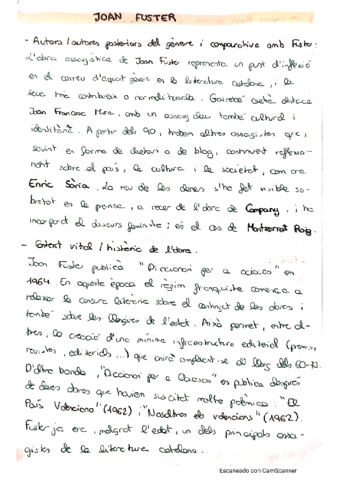 JOAN FUSTER
- Autors / autores posteriors del gènere i comparativa amb Fuster:
L'obra assagística de Joan Fuster representa un punt d'inflexió
en el conreu d'aquest gènere en la literatura catalana, i la
seua
Joan Francesc Mira, amb un assaig seu també cultural i
identitària. A partir dels 90, trobem altres assagistes que,
sovint en forma de dietari o de blog, continuen reflexio-
nant sobre el país, la cultura i la societat, com ara
Enric Sòria. La veu de les dones s'ha fet visible so-
bretot en la premsa, a recer de l'obra de Company, i ha
incorporat el discurs feminista; és el cas de Montserrat Roig.
- Context vital / històric de l'obra.
Joan Fuster publicà "Diccionari per a ociosos" en
1964. En aquesta època el règim franquista comença a
relaxar la censura literària sobre el contingut de les obres i
també sobre les llengües de l'estat. Això permet, entre al-
tres, la creació d'una mínima infraestructura editorial (premis,
revistes, editorials...) que anirà ampliant-se al llarg dels 60-70.
D'altra banda, "Diccionari per a Ociosos" es publica després
de dues obres que havien suscitat molta polèmica: "El
País Valenciano" (1962) i "Nosaltres els valencians" (1962).
Fuster ja era, malgrat l'edat, un dels principals assa-
gistes de la literatura catalana.
Escaneado con CamScanner